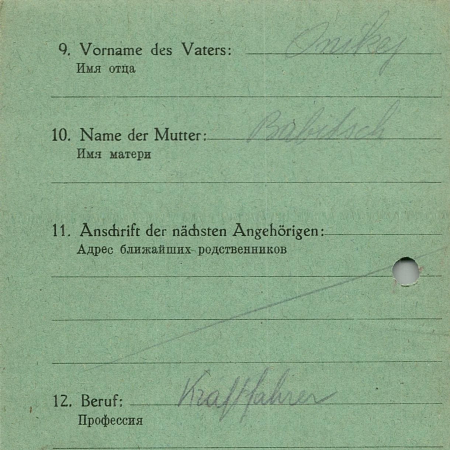 9. Vorname des Vaters: Onikej
Имя отца
10. Name der Mutter: Babitsch
Имя матери
11. Anschrift der nächsten Angehörigen:
Адрес ближайших родственников
12. Beruf: Kraftfahrer
Профессия